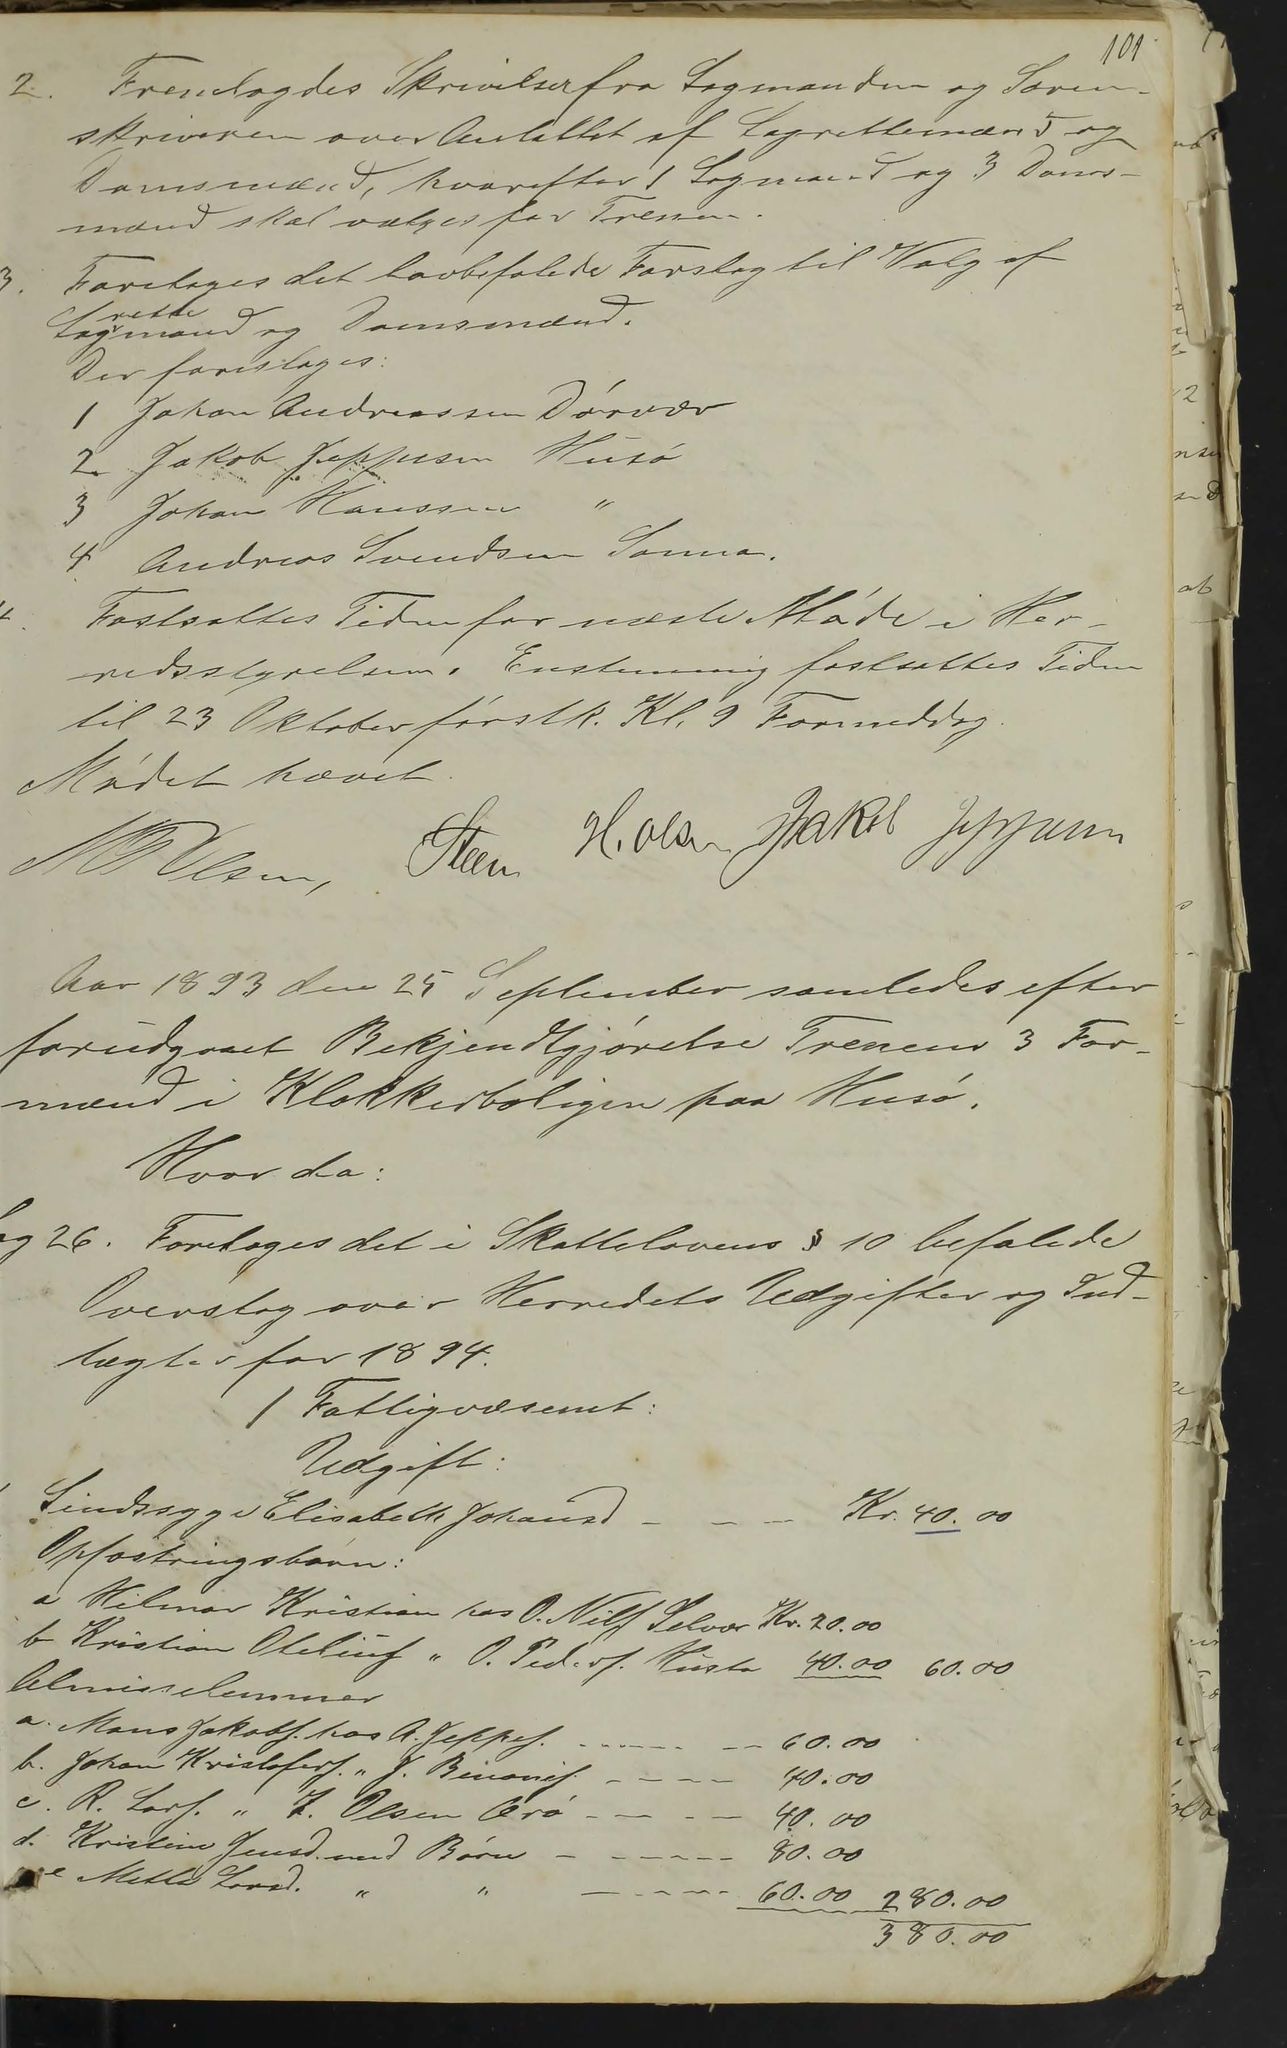 101
2. Fremlagdes Skrivelser fra Lagmanden og Soren-
skriveren over Antallet af Lagrettemænd og
Domsmænd, hvorefter 1 Lagmand og 3 Doms-
mænd skal vælges for Trenen.
3. Foretages det lovbefalede Forslag til Valg af
Lagrettemand og Domsmænd.
Der foreslages:
1 Johan Andreassen Dørvær
2 Jakob Jeppesen Husø
3 Johan Hanssen "
4 Andreas Svendsen Sanna.
4. Fastsattes Tiden for næste Møde i Her-
redsstyrelsen. Enstemmig fastsattes Tiden
til 23 Oktober førstk. Kl. 9 Formiddag.
Mødet hævet.
Olsen, Steen H. Olsen Jakob Jeppesen
Aar 1893 den 25 September samledes efter
forudgaaet Bekjendtgjørelse Trenens 3 For-
mænd i Klokkerboligen paa Husø.
Hvor da:
Sag 26. Foretages det i Skattelovens § 10 befalede
Overslag over Herredets Udgifter og Ind-
tægter for 1894.
1 Fattigvæsenet:
Udgift:
Sindssyge Elisabeth Johansd - - - Kr. 40.00
Opfostringsbørn:
a Hilmar Kristian hos O. Nilss Selvær Kr. 20.00
b Kristian Oteliuss " O. Peders. Husø 40.00 60.00
Almisselemmer
a. Mons Jakobs. hos A. Jeppes. - - - 60.00
b. Johan Kristofers. " J. - - - - 40.00
c. R. Lars. " Olsen - - - 40.00
d. Kristine Jensd. med Børn - - - - 80.00
e Mette Larsd. " " - - - - 60.00 280.00
380.00